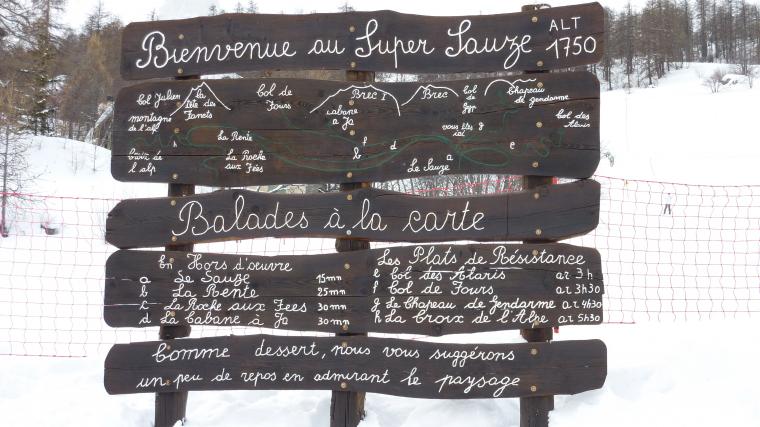 Bienvenue au Super Sauze
ALT
1750
Col Julien
la
Tête des
Fanets
Col de
Fours
Brec I
Cabane
a Ja
Brec
Col
de
Chapeau
de gendarme
montagne
de l'alp
Col des
Ataris
La Rente
vous êtes
ici
de l'alp
La Roche
aux Fées
Le Sauze
h f d e b a
Balades à la carte
En Hors d'œuvre
a Le Sauze 15mn
b La Rente 25mn
c La Roche aux Fees 30mn
d La Cabane à Ja 30mn
Les Plats de Résistance
e Col des Ataris ar 3h
f Col de Fours ar 3h30
g Le Chapeau de Gendarme ar 4h30
h La Croix de l'Alpe ar 5h30
Comme dessert, nous vous suggérons
un peu de repos en admirant le paysage